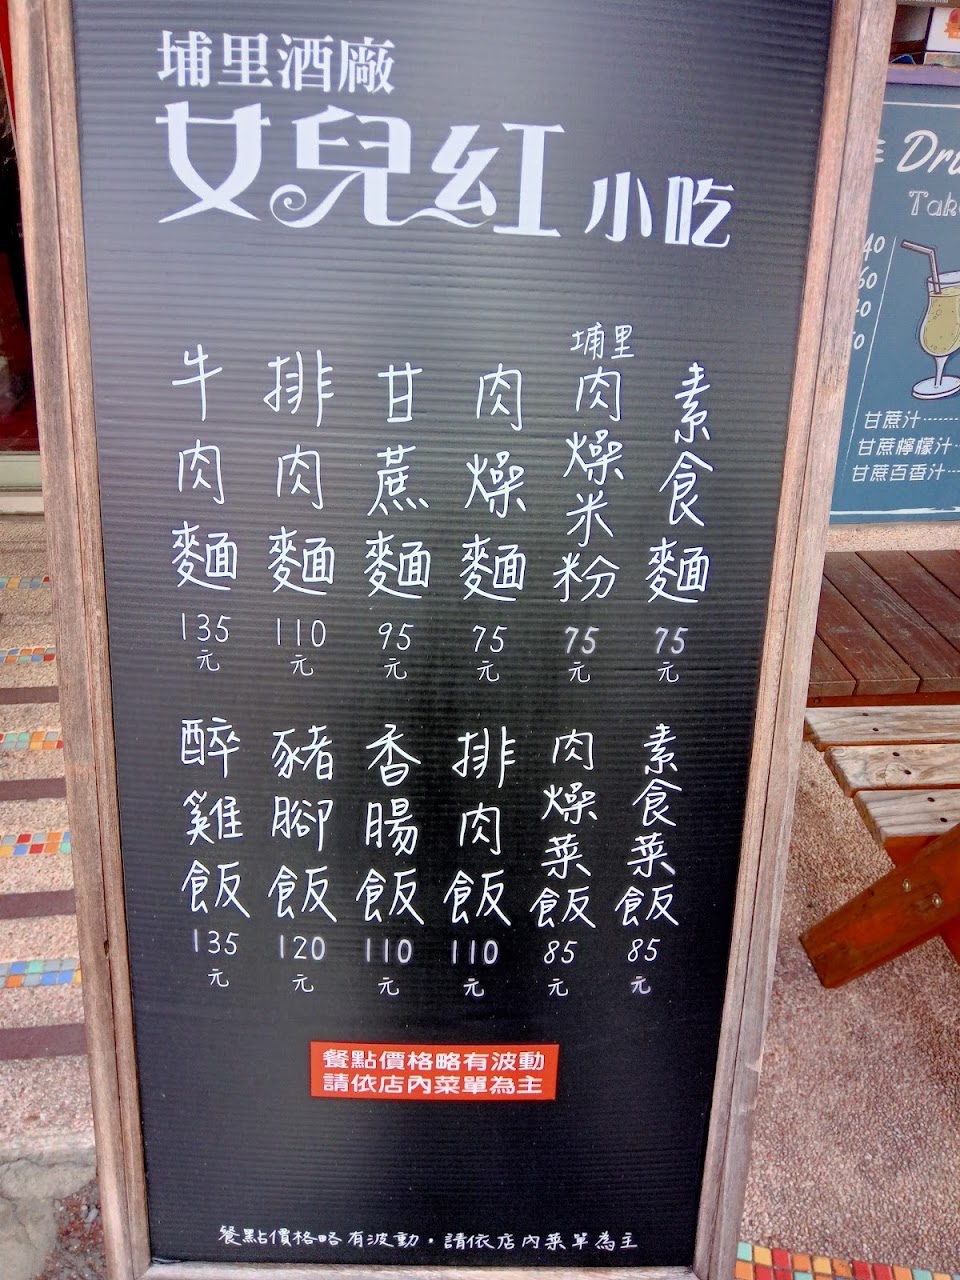 埔里酒廠
女兒紅小吃
牛肉麵
135
元
排肉麵
110
元
甘蔗麵
95
元
肉燥麵
75
元
埔里
肉燥米粉
75
元
素食麵
75
元
醉雞飯
135
元
豬腳飯
120
元
香腸飯
110
元
排肉飯
110
元
肉燥菜飯
85
元
素食菜飯
85
元
餐點價格略有波動
請依店內菜單為主
餐點價格略有波動，請依店內菜單為主
甘蔗汁
甘蔗檸檬汁
甘蔗百香汁